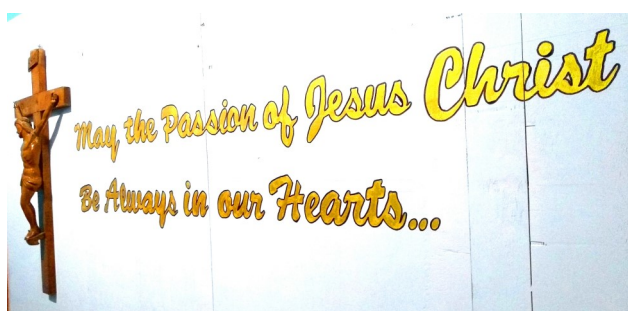 May the Passion of Jesus Christ
Be Always in our Hearts...